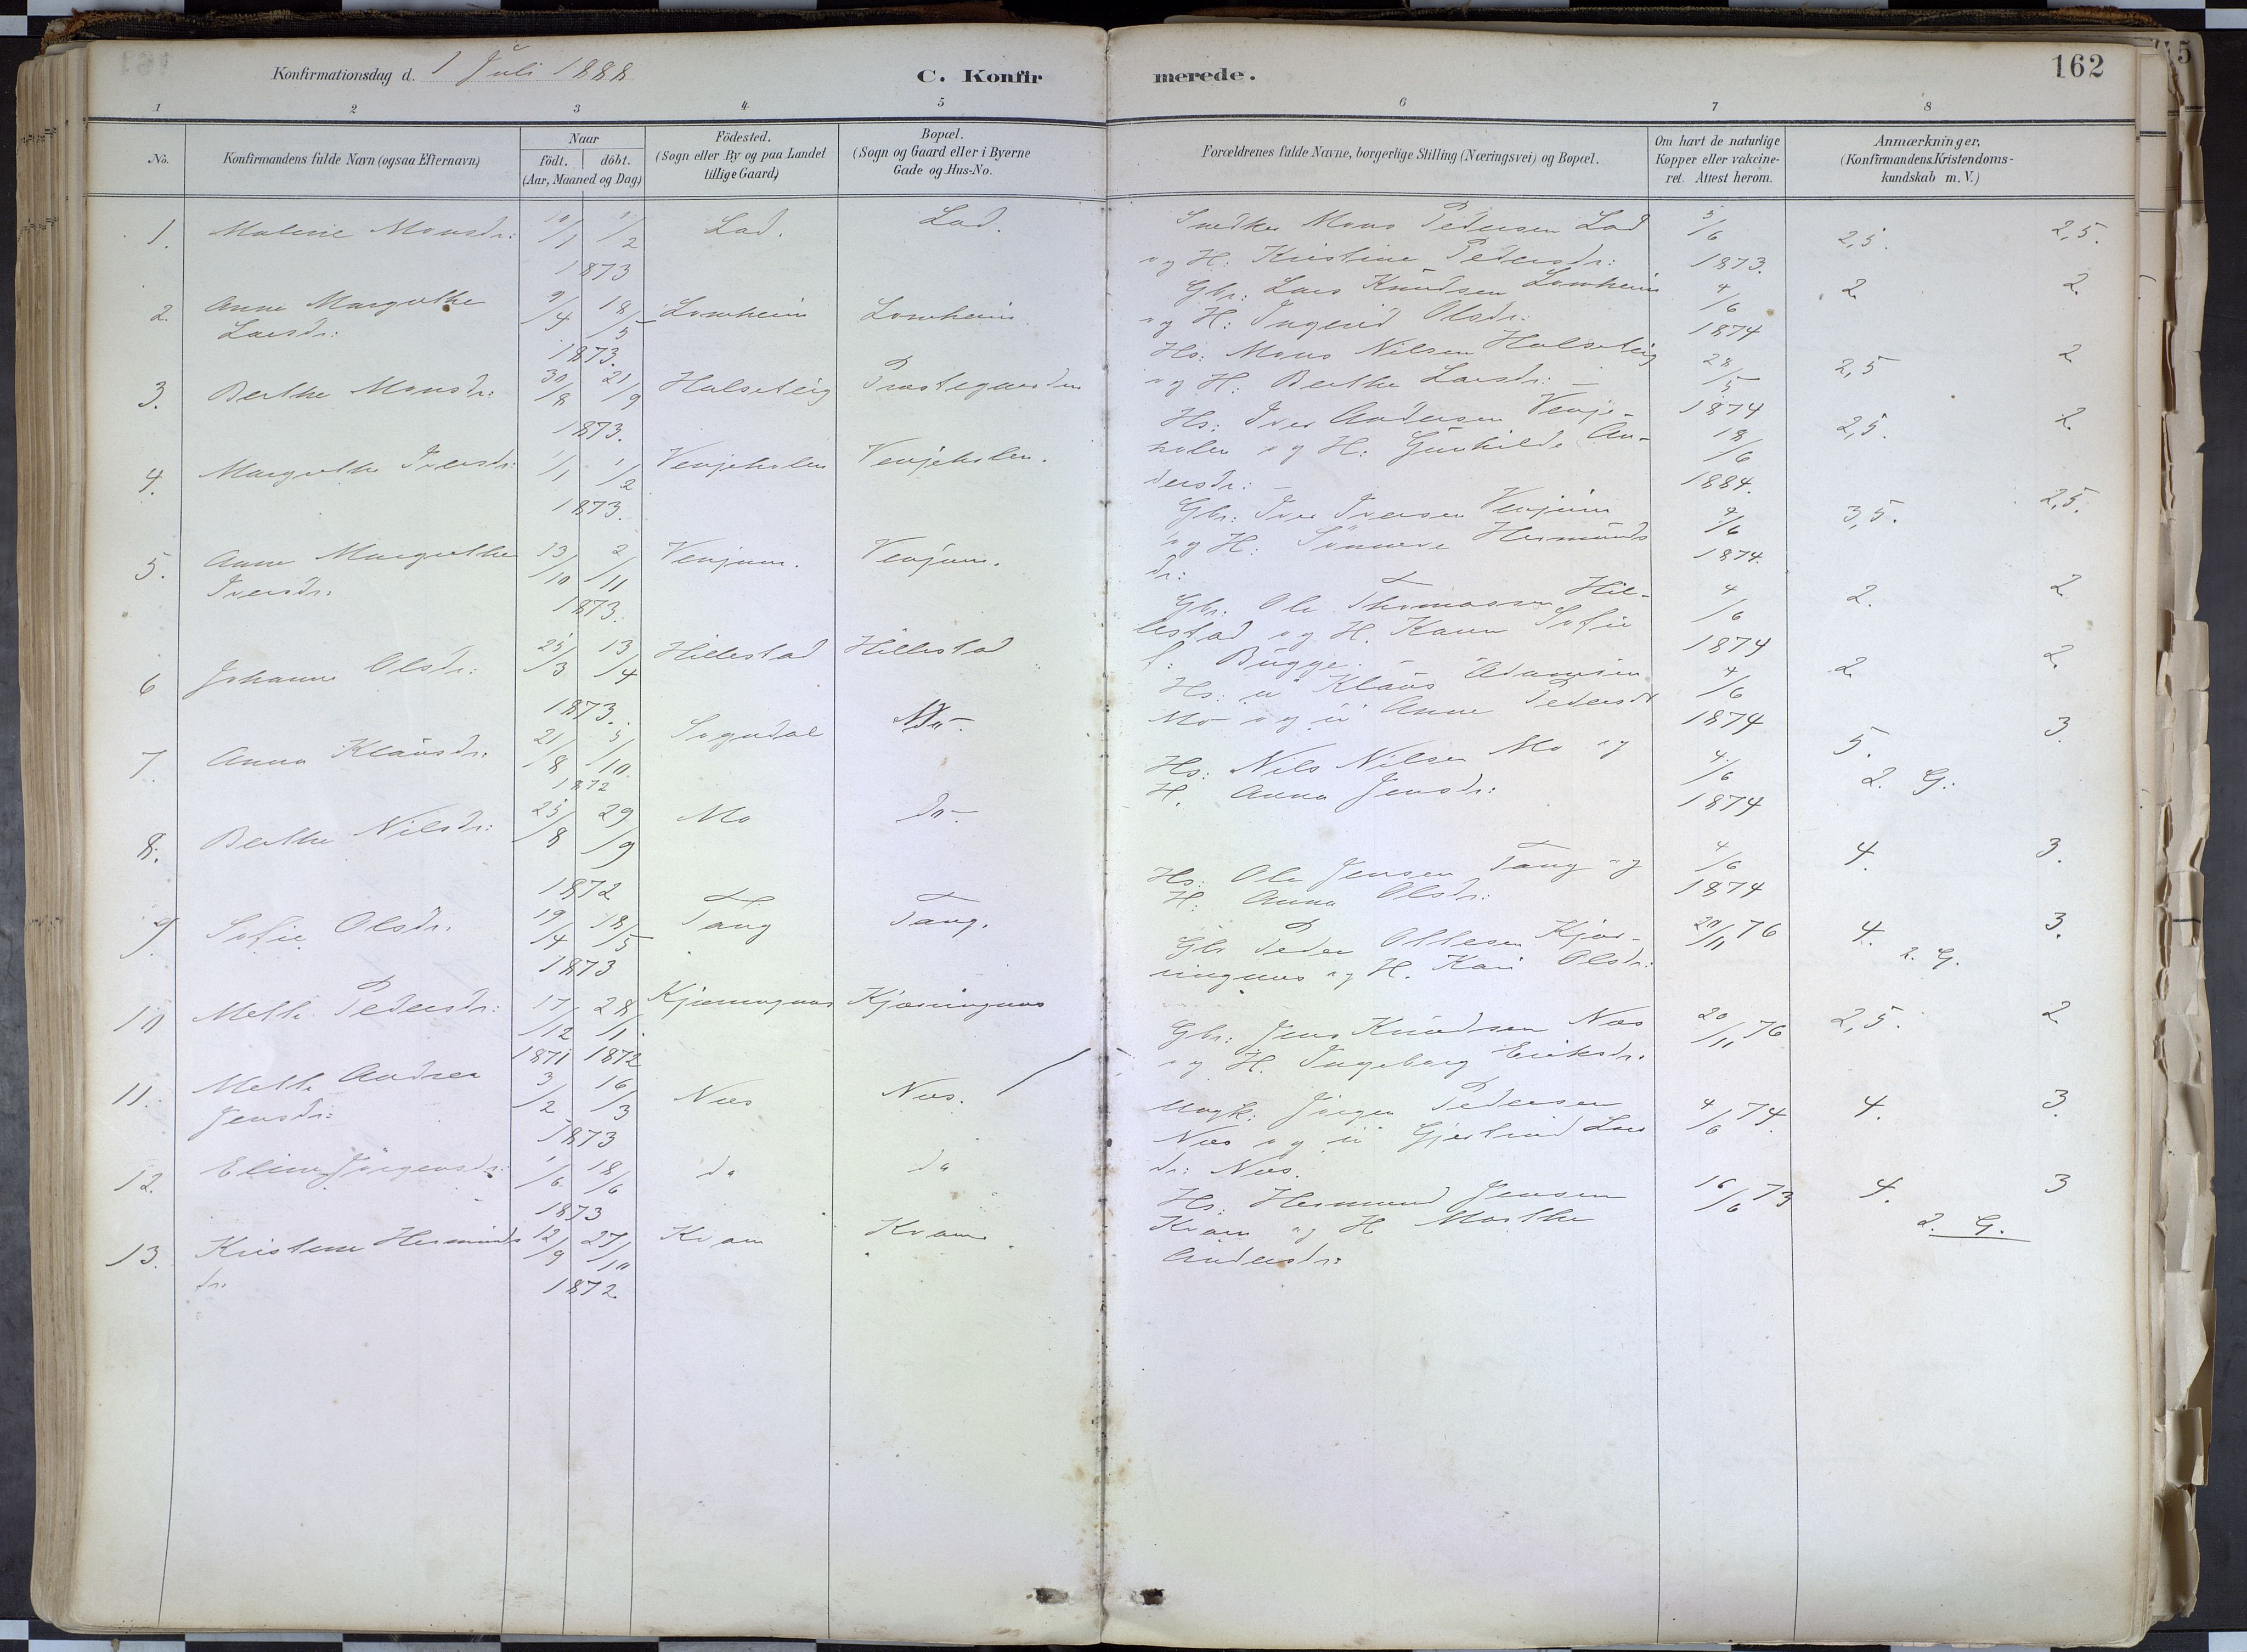 Konfirmationsdag d. 1 Juli 1888
C. Konfirmerede.
162
1 2 3 4 5 6 7 8
No.
Konfirmandens fulde Navn (ogsaa Efternavn)
Naar
födt. döbt.
(Aar, Maaned og Dag)
Födested.
(Sogn eller By og paa Landet
tillige Gaard)
Bopæl.
(Sogn og Gaard eller i Byerne
Gade og Hus-No.
Forældrenes fulde Navne, borgerlige Stilling (Næringsvei) og Bopæl.
Om havt de naturlige
Kopper eller vakcine-
ret. Attest herom.
Anmærkninger,
(Konfirmandens Kristendoms-
kundskab m. V.)
1. Malene Monsdr: 10/1 1/2 Lad. Lad. Snedker Mons Pedersen Lad 5/6 2,5. 2,5.
1873 og H: Kristine Pedersdr: 1873.
2. Anne Margrethe 9/4 18/5 Lomheim Lomheim. Gbr: Lars Knudsen Lomheim 4/6 2 2
Larsdr: 1873. og H: Ingerid Olsdr: 1874
3. Berthe Monsdr: 30/8 21/9 Halsteig Prestegaarden Hs: Mons Nilsen Halsteig 28/5 2,5 2
1873. og H: Berthe Larsdr: – 1874
4. Margrethe Iversdr: 1/1 1/2 Venjeholen Venjeholen. Hs: Iver Andersen Venje- 18/6 2,5. 2.
1873. holen og H: Gunhilde An-
dersdr: – 1884.
5. Anne Margrethe 13/10 2/11 Venjum. Venjum. Gbr: Iver Iversen Venjum 4/6 3,5. 2,5.
Iversdr: 1873. og H: Synneve Hermunds 1874.
dr:
6 Johanne Olsdr: 25/3 13/4 Hillestad Hillestad Gbr: Ole Thomassen Hil- 4/6 2. 2
1873. lestad og H. Karen Sofie 1874
f: Bugge.
7. Anna Klausdr: 21/8 5/10 Sogndal Mo. Hs: u Klaus Adamsen 4/6 2 2.
1872 Mo og u Anne Pedersdr 1874
8. Berthe Nilsdr: 25/8 29/9 Mo do. Hs: Nils Nilsen Mo og 4/6 5. 3.
1872 H. Anna Jensdr: 1874 2. G.
9 Sofie Olsdr. 19/4 18/5 Tang Tang. Hs: Ole Jensen Tang og 4/6 4. 3.
1873 H: Anna Olsdr: 1874
10 Mette Pedersdr: 17/12 28/1 Kjæringnæs Kjæringnæs Gbr Peder Ollesen Kjær- 20/11 76 4. 3.
1871 1872 ingnæs og H. Kari Olsdr: 2. G.
11. Mette Andrea 3/2 16/3 Næs Næs. Gbr: Jens Knudsen Næs 20/11 76 2,5. 2
Jensdr: 1873 og H. Ingeborg Eriksdr.
12. Eline Jörgensdr: 1/6 18/6 do do Ungk: Jörgen Pedersen 4/6 74. 4. 3.
1873 Næs og u Gjertrud Lars
dr: Næs.
13. Kristense Hermunds 12/9 27/10 Kvam Kvam. Hs. Hermund Jensen 16/6 73 4. 3
dr. 1872. Kvam og H Marthe 2. G.
Andersdr: